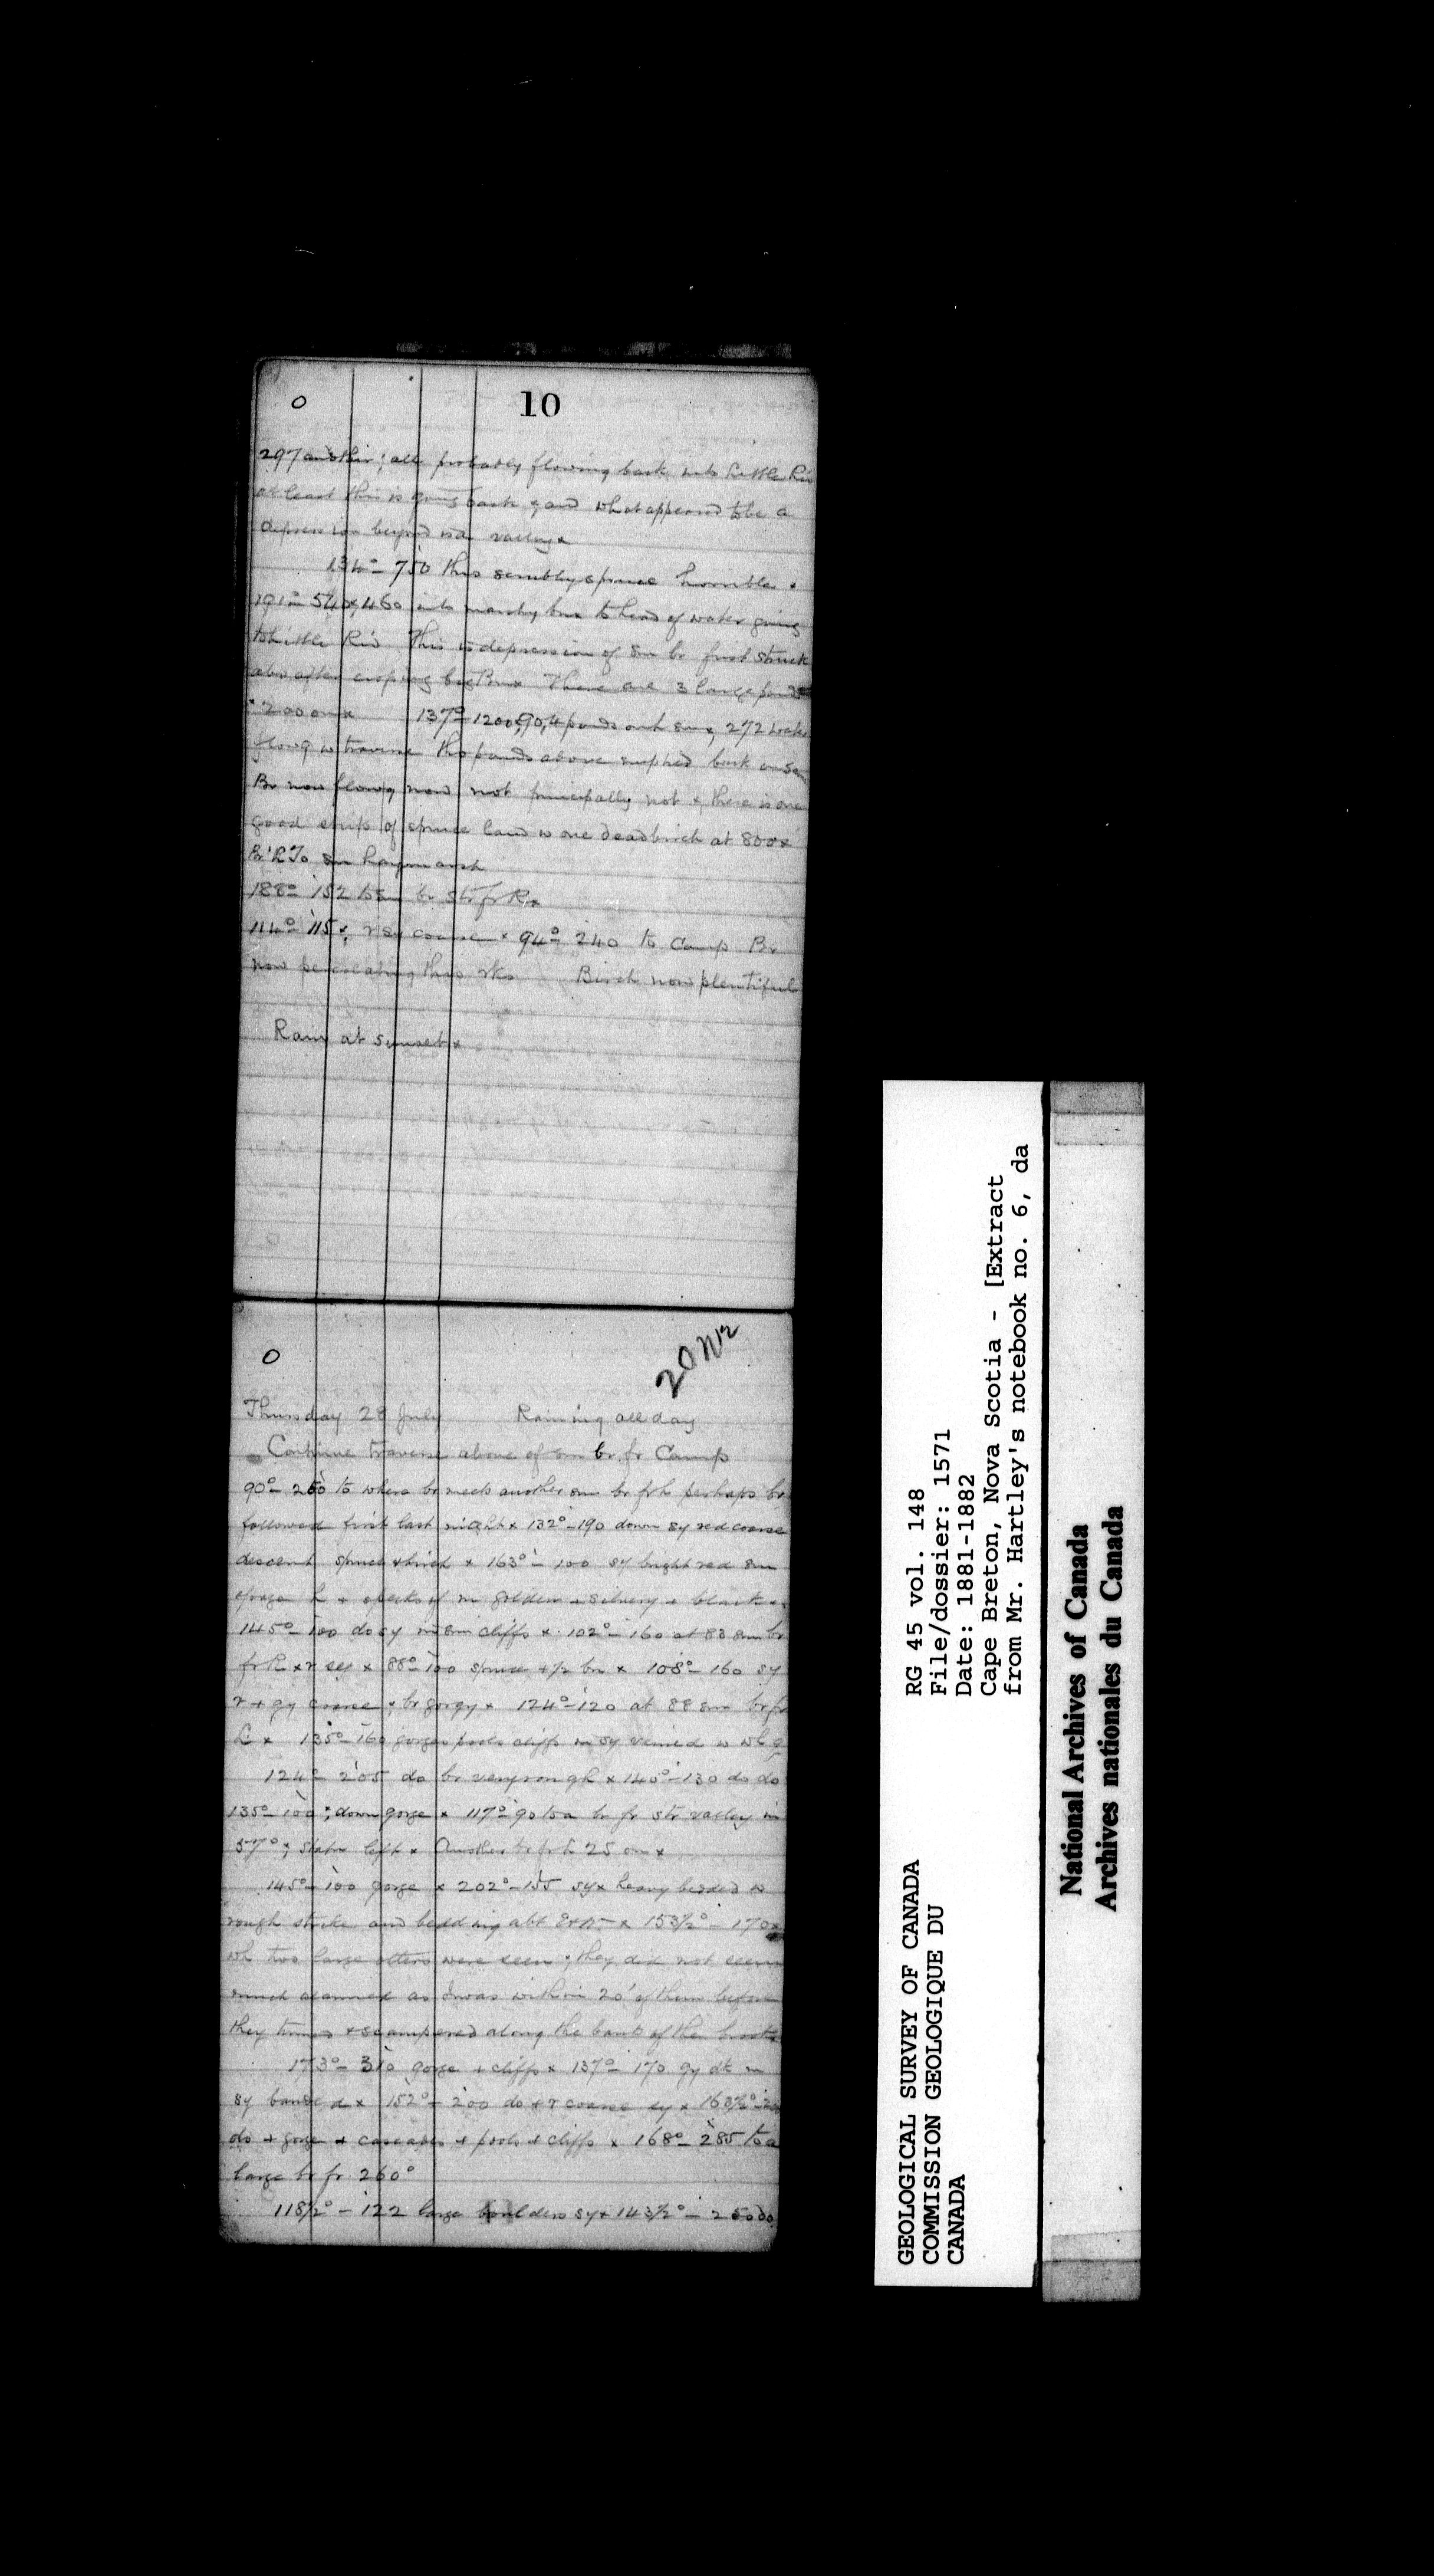 0
10
297 another; all probably flowing back into Little Riv
at least this is going back; and what appeared to be a
depression beyond is a valley x
134° - 750 thro scrubby spruce horrible x
191° - 540 x, 460 into marshy bn to head of water going
to Little Riv This is depression of sm br first struck
There are 3 large ponds
200 on x 137° - 1200; 90, 4 ponds on sm x, 272 water
flowg
Br now flowg now not principally not x, there is one
good strip of spruce land w one dead birch at 800 x
188° 152 to sm br str fr R x
114° 115 x, r sy coarse x 94° 240 to Camp Br
now percolating thro rks Birch now plentiful
Rain at sunset x
0
20 N12
Thursday 28 July Raining all day
Continue traverse above of sm br fr Camp
90° - 260 to where br meets another sm br fr L perhaps br
followed first last night x 132° - 190 down sy red coarse
descent spruce + birch x 163° - 100 sy bright red sm
specks of m golden + silvery + black x
145° - 100 do sy in sm cliffs x 102° - 160 at 83 sm br
fr R x r sy x 88° 100 spruce + p bn x 108° - 160 sy
r + gy coarse x, br gorgy x 124° - 120 at 88 sm br fr
L x 135° - 160 gorges pools cliffs in sy veined w wh q
124° - 205 do br very rough x 140° - 130 do do
135° 100; down gorge x 117° 90 to a br fr str valley in
57°; left x Another br fr L 25 on x
145° - 100 gorge x 202° - 155 sy x heavy bedded w
rough strike and bedding abt E + W x 153½° - 170 x
wh two large otters were seen; they did not seem
much alarmed as I was within 20' of them before
they turned + scampered along the bank of the brook
173° - 310 gorge + cliffs x 137° - 170 gy dk m
sy banded x 152° - 200 do + r coarse sy x 163½°
do + gorge + cascades + pools + cliffs x 168° - 285 to a
large br fr 260°
118½° - 122 large boulders sy x 143½° - 250 do
GEOLOGICAL SURVEY OF CANADA
COMMISSION GEOLOGIQUE DU
CANADA
RG 45 vol. 148
File/dossier: 1571
Date: 1881-1882
Cape Breton, Nova Scotia - [Extract
from Mr. Hartley's notebook no. 6, da
National Archives of Canada
Archives nationales du Canada